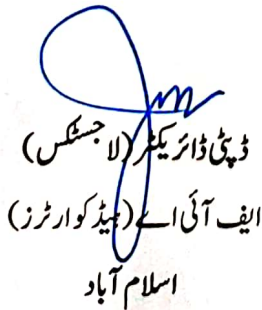 ڈپٹی ڈائریکٹر (لاجسٹکس)
ایف آئی اے (ہیڈکوارٹرز)
اسلام آباد